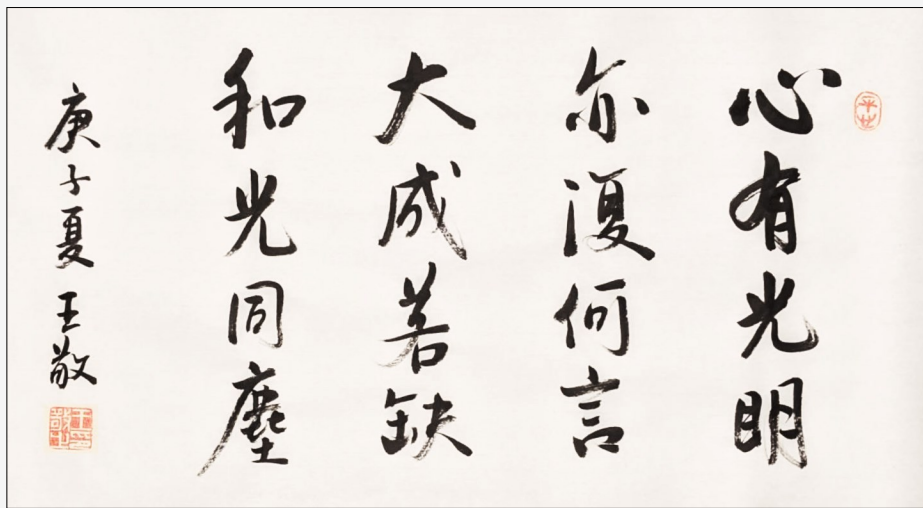 心有光明
亦復何言
大成若缺
和光同塵
庚子夏王敬